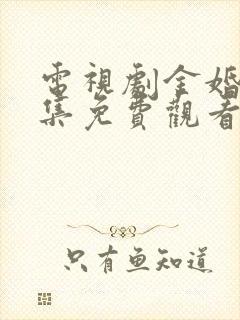 電視劇金婚
集免費觀看
只有鱼知道